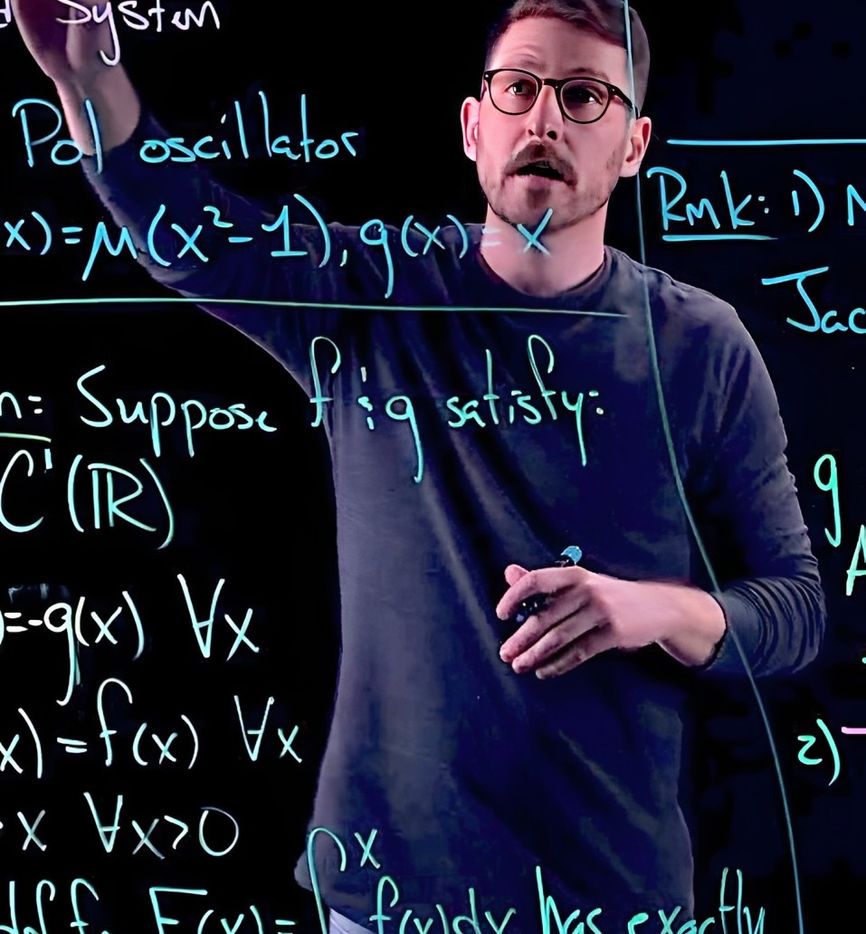 System
Pol oscillator
x)=μ(x²-1), g(x)=x
n: Suppose f & g satisfy:
C¹(ℝ)
)=-g(x) ∀x
x)=f(x) ∀x
x ∀x>0
F(x)=∫ˣ f(x)dx has exactly
Rmk: 1)
Jac
g
A
2)